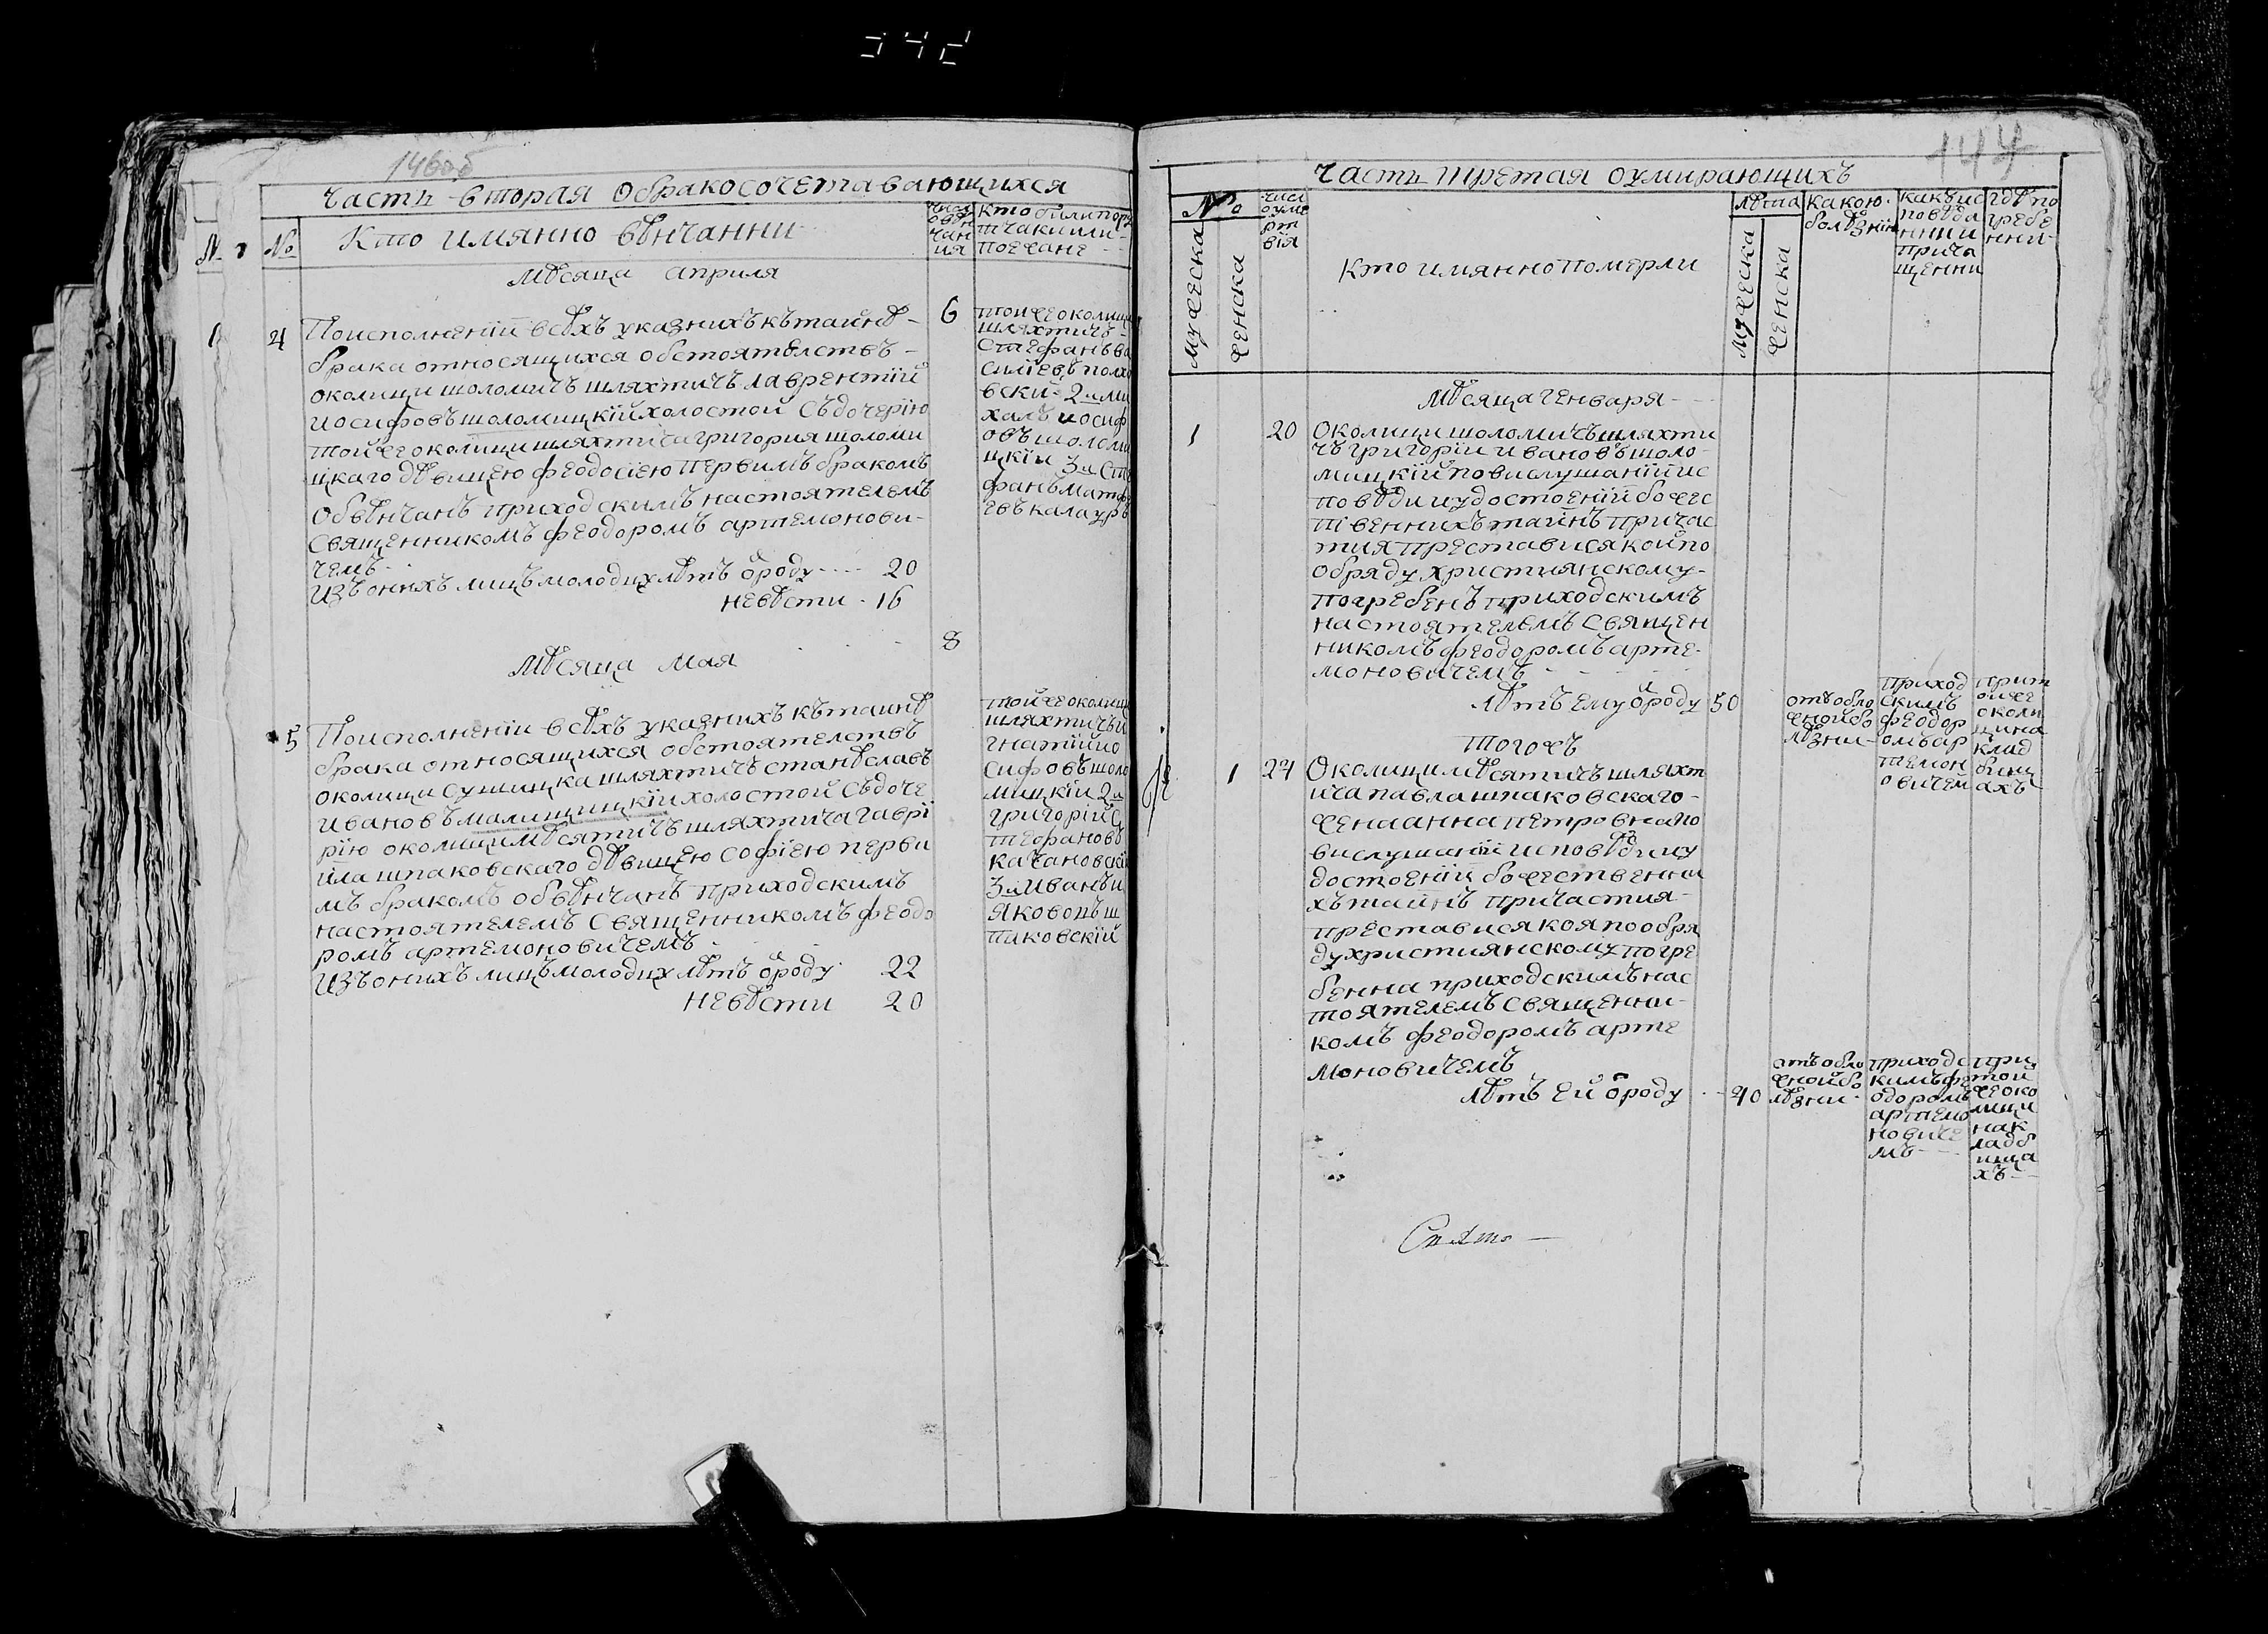 146об
Часть вторая обракосочетавающихся
№
Кто имянно вѣнчанни
Число вѣн чан ия
Кто били пору
тчаки или
поезане
Мѣсяца Априля
4
6
По исполненій всѣхъ указнихъ къ тайнѣ
брака относящихся обстоятелствъ
околици шоломичъ шляхтичъ лаврентій
иосифовъ шоломицкій холостой съ дочерію
тойже околици шляхтича григория шоломи
цкаго дѣвицею феодосіею первимъ бракомъ
обвѣнчанъ приходскимъ настоятелемъ
Священникомъ феодоромъ артемонови-
чемъ
Изъ онихъ лицъ молодихъ лѣтъ ѿроду 20
невѣсти 16
тойже околици
шляхтичъ
Стефанъ ва
силіевъ полхо
вски 2й ми
халъ иосиф
овъ шоломи
цкій 3й Сте
фанъ матф
евъ калауръ
Мѣсяца Мая
8
5
По исполненіи всѣхъ указнихъ къ таинѣ
брака относящихся обстоятелствъ
околици Сушицка шляхтичъ станѣславъ
ивановъ малишицкій холостой Съ доче
рію околици мѣсятичъ шляхтича гаврі
ила шпаковскаго дѣвицею Софіею перви
мъ бракомъ обвѣнчанъ приходскимъ
настоятелемъ Священникомъ феодо
ромъ артемоновичемъ
Изъ онихъ лицъ молодих лѣтъ ѿроду 22
невѣсти 20
тойже околици
шляхтичъ и
гнатій ио
сифовъ шоло
мицкій 2й
григорій С
тефановъ
качановскі
3й Иванъ и
Яковецъ ш
паковскій
144
Часть третая оумирающихъ
№
мужеска
женска
числ
оуме
рт
вія
Кто имянно померли
лѣта
мужеска
женска
какою
болѣзнію
как ис
повѣда
нни и
прича
щенни
гдѣ по
гребе
нни
Мѣсяца Генваря
1
20
Околици шоломичъ шляхти
чъ григорій ивановъ шоло-
мицкій по вислушаній ис
повѣди и удостоеній божес
твеннихъ тайнъ причас
тия преставися кой по
обряду християнскому
погребенъ приходскимъ
настоятелемъ Священ
никомъ феодоромъ арте-
моновичемъ
лѣтъ ему ѿроду 50
отъ обло
жной бо
лѣзни
приход
скимъ
феодор
омъ ар
темон
овичем
при т
ойже
околи
ци на
клад
бищ
ахъ
тогожъ
1
27
Околици мѣсятичъ шляхт
ича павла шпаковскаго
жена анна петровна по
вислушаній исповѣди и у
достоеній божественни
хъ тайнъ причастия
преставися коя по обря
ду християнскому погре
бенна приходскимъ нас
тоятелемъ Священни-
комъ феодоромъ арте
моновичемъ
лѣтъ ей ѿроду 40
отъ обло
жной бо
лѣзни
приходс
кимъ фе
одоромъ
артемо
новиче
мъ
при
той
же око
лици
на к
ладб
ища
хъ